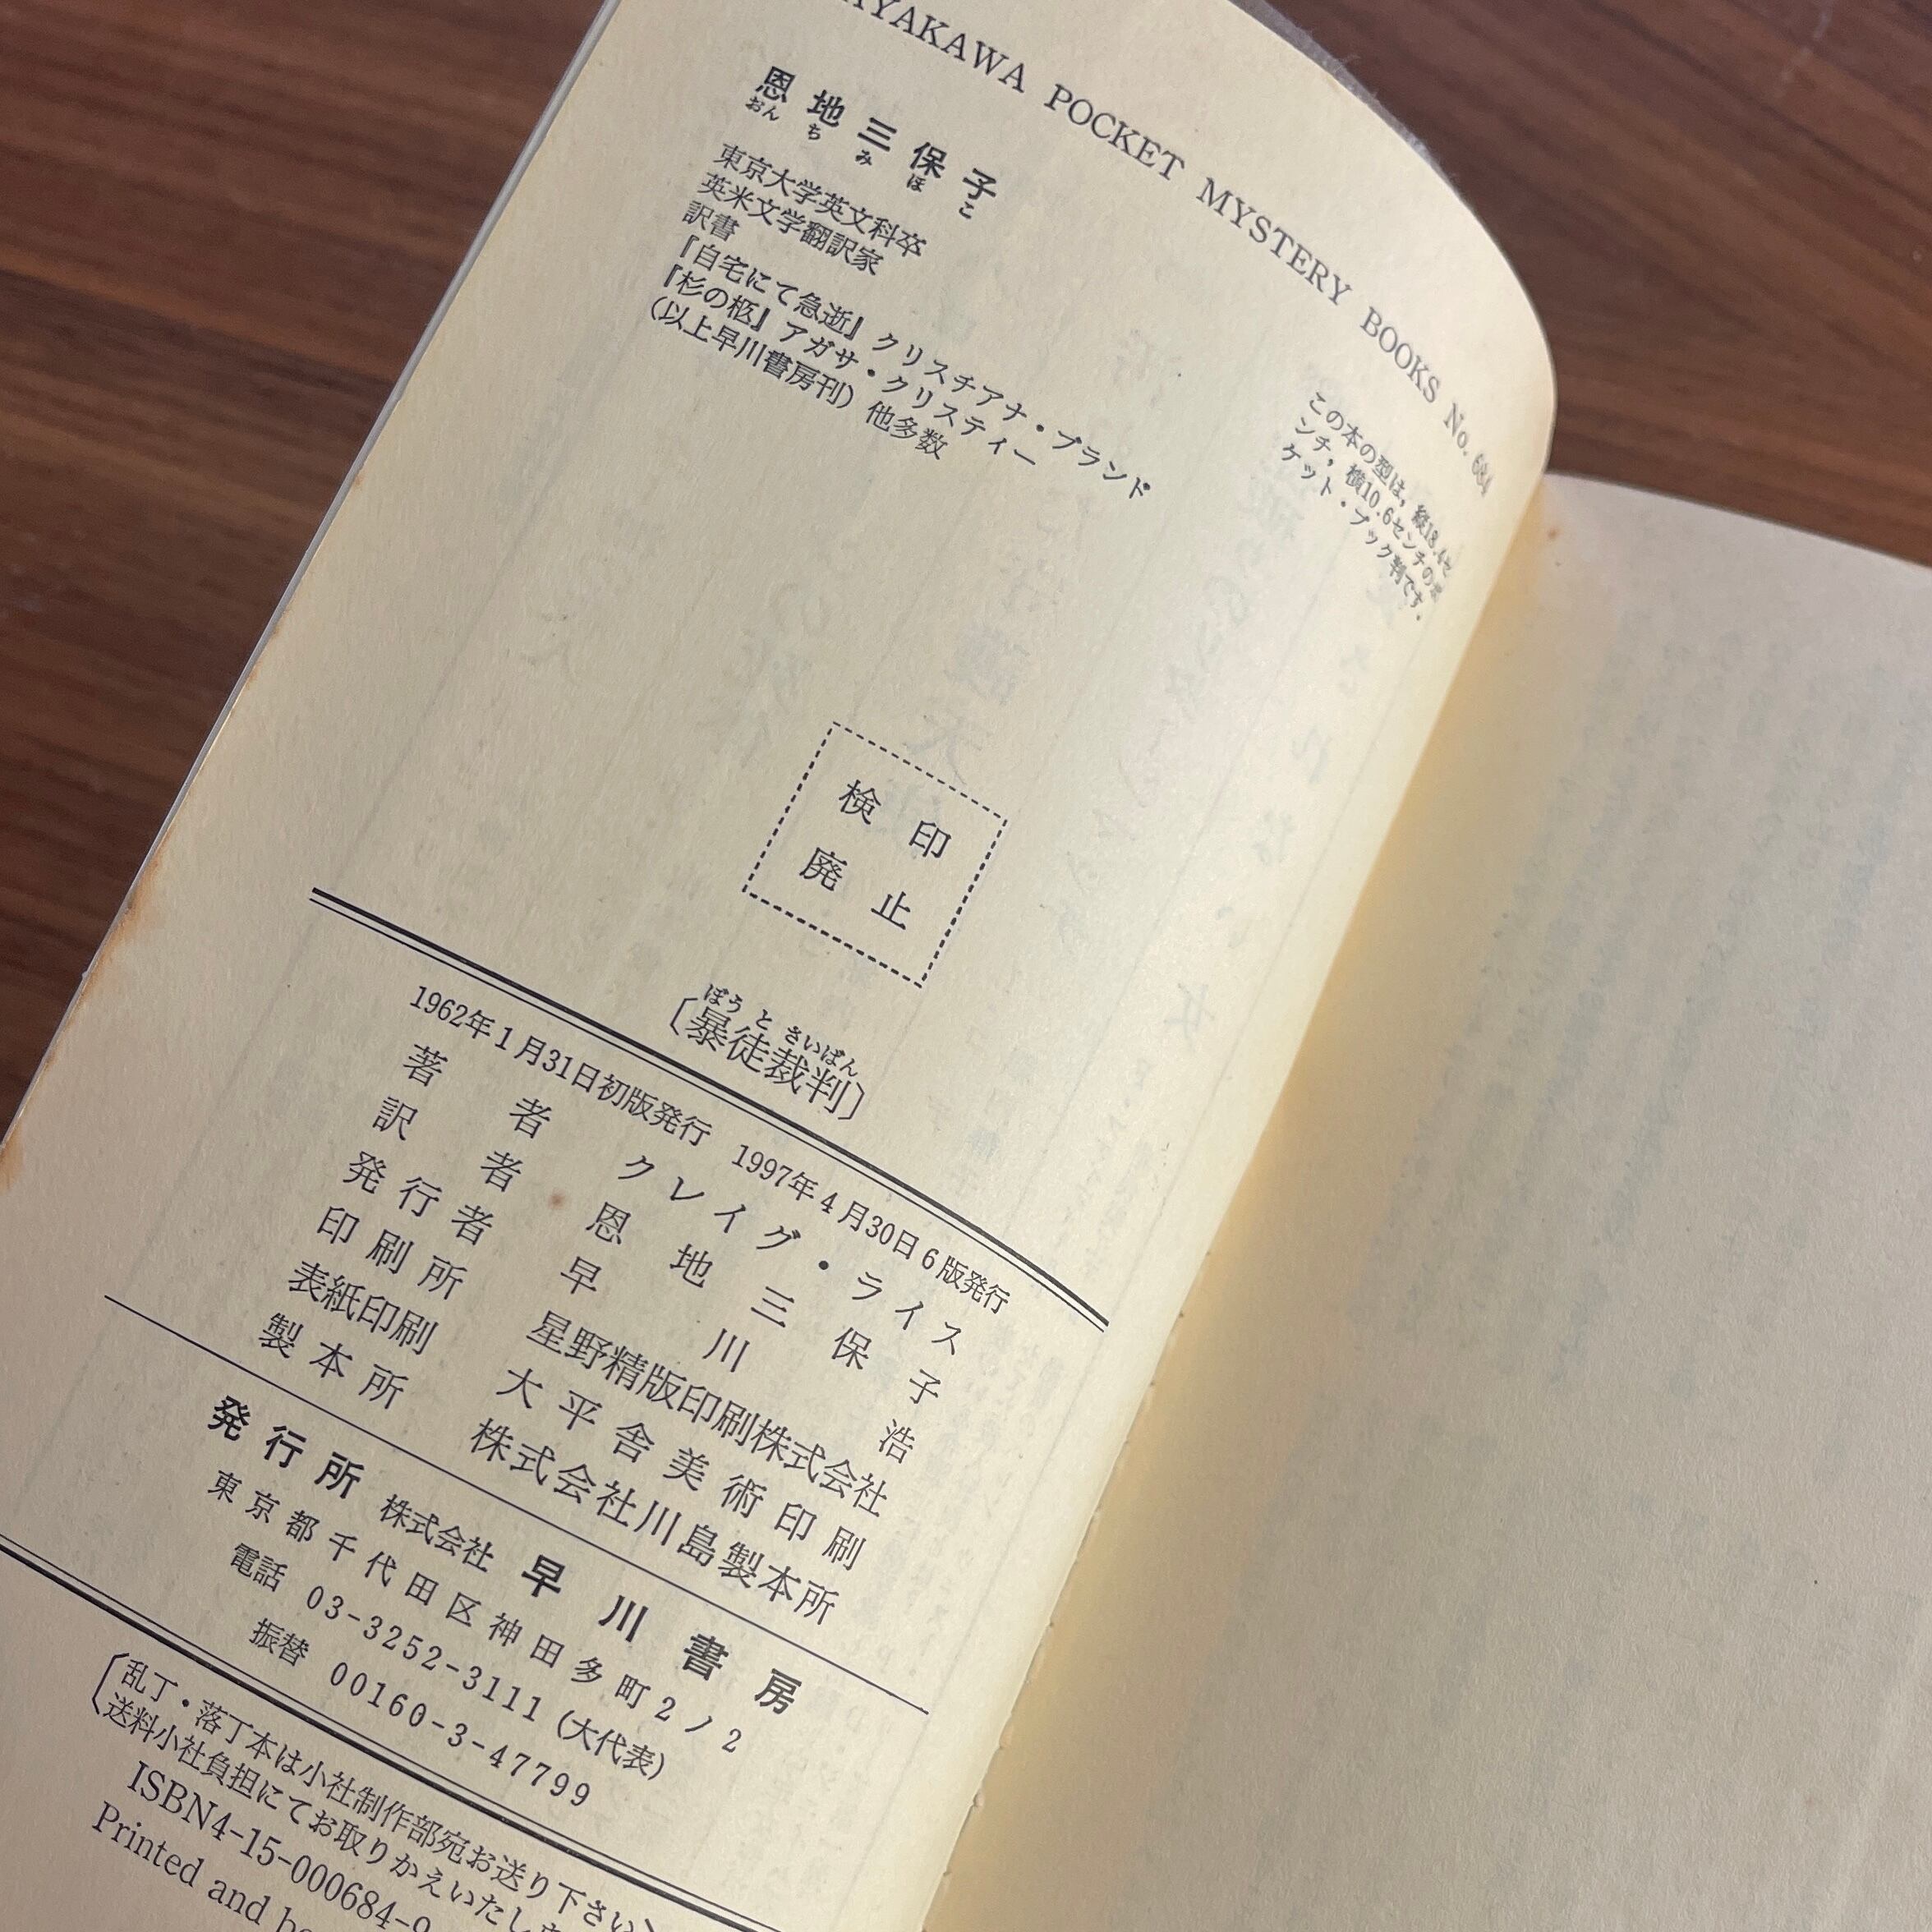 HAYAKAWA POCKET MYSTERY BOOKS No. 684
恩地三保子
おん ち み ほ こ
東京大学英文科卒
英米文学翻訳家
訳書
『自宅にて急逝』クリスチアナ・ブランド
『杉の柩』アガサ・クリスティー
(以上早川書房刊) 他多数
この本の型は，縦18.4セ
ンチ，横10.6センチの
ケット・ブック判です．
検印
廃止
ぼう と さいばん
〔暴徒裁判〕
1962年1月31日初版発行 1997年4月30日6版発行
著者 クレイグ・ライス
訳者 恩地三保子
発行者 早川浩
印刷所 星野精版印刷株式会社
表紙印刷 大平舎美術印刷
製本所 株式会社川島製本所
発行所 株式会社 早川書房
東京都千代田区神田多町2ノ2
電話 03-3252-3111 (大代表)
振替 00160-3-47799
乱丁・落丁本は小社制作部宛お送り下さい
送料小社負担にてお取りかえいたしま
ISBN4-15-000684-9
Printed and bo